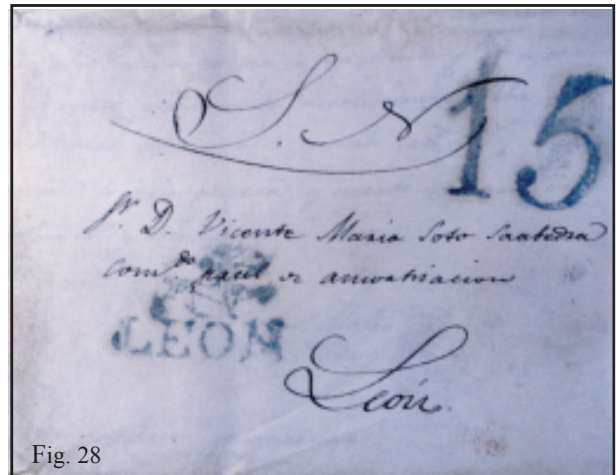 S. N
15
Sr. D. Vicente Maria Soto Saabedra
com.do de amortizacion
LEON
León.
Fig. 28